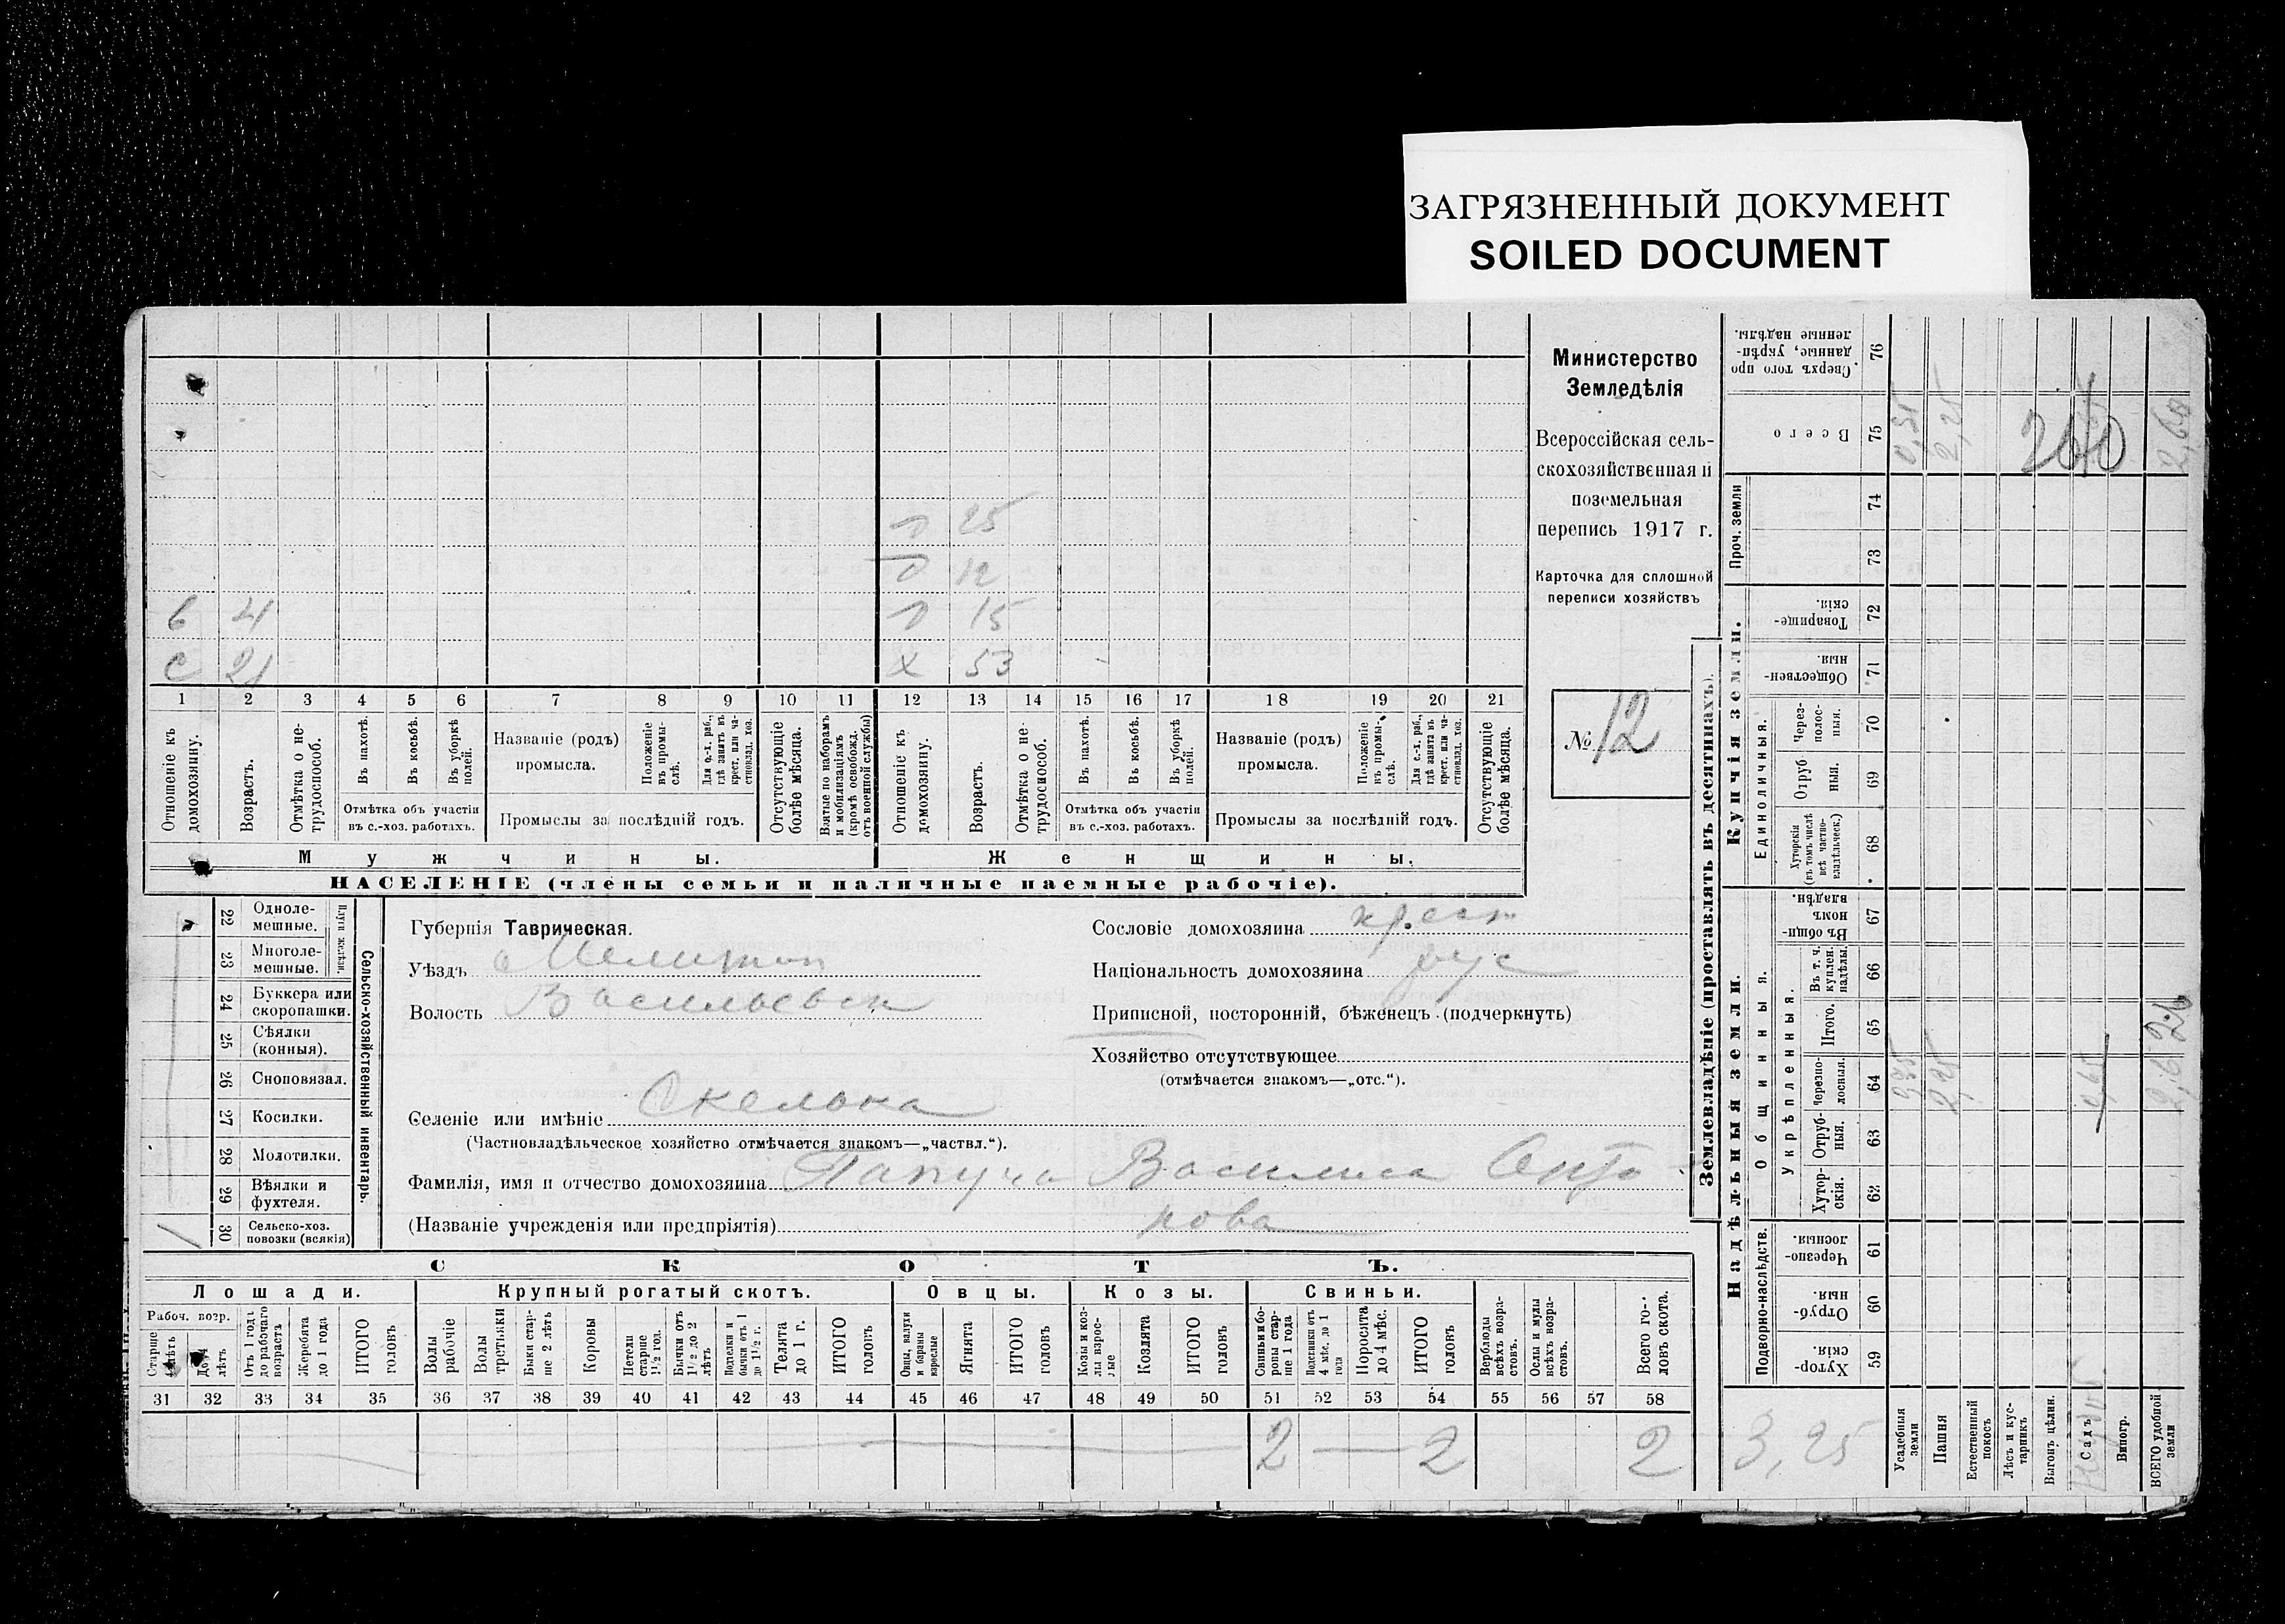 ЗАГРЯЗНЕННЫЙ ДОКУМЕНТ
SOILED DOCUMENT
Министерство
Земледѣлія
Всероссійская сель-
скохозяйственная и
поземельная
перепись 1917 г.
Карточка для сплошной
переписи хозяйствъ
№ 12
25
12
6 4 15
с 21 х 53
1 2 3 4 5 6 7 8 9 10 11 12 13 14 15 16 17 18 19 20 21
Отношеніе къ домохозяину.
Возрастъ.
Отмѣтка о не-трудоспособ.
Въ пахотѣ.
Въ косьбѣ.
Въ уборкѣ полей.
Отмѣтка объ участіи
въ с.-хоз. работахъ.
Названіе (родъ)
промысла.
Положеніе въ промы-слѣ.
Для с.-х. раб., гдѣ занятъ въ крест. или ча-стновлад. хоз.
Промыслы за послѣдній годъ.
Отсутствующіе болѣе мѣсяца.
Взятые по наборамъ и мобилизаціямъ (кромѣ освобожд. отъ военной службы)
Отношеніе къ домохозяину.
Возрастъ.
Отмѣтка о не-трудоспособ.
Въ пахотѣ.
Въ косьбѣ.
Въ уборкѣ полей.
Отмѣтка объ участіи
въ с.-хоз. работахъ.
Названіе (родъ)
промысла.
Положеніе въ промы-слѣ.
Для с.-х. раб., гдѣ занята въ крест. или ча-стновлад. хоз.
Промыслы за послѣдній годъ.
Отсутствующіе болѣе мѣсяца.
Мужчины. Женщины.
НАСЕЛЕНІЕ (члены семьи и наличные наемные рабочіе).
Сельско-хозяйственный инвентарь.
Плуги желѣзн.
22 Одноле-мешные.
23 Многоле-мешные.
24 Буккера или скоропашки.
25 Сѣялки (конныя).
26 Сноповязал.
27 Косилки.
28 Молотилки.
29 Вѣялки и фухтеля.
30 Сельско-хоз. повозки (всякія)
Губернія Таврическая.
Уѣздъ Мелитоп
Волость Васильевск
Селеніе или имѣніе Скелька
(Частновладѣльческое хозяйство отмѣчается знакомъ—„частвл.“).
Фамилія, имя и отчество домохозяина Папуча Василиса Анто
(Названіе учрежденія или предпріятія) нова
Сословіе домохозяина крест
Національность домохозяина рус
Приписной, посторонній, бѣженецъ (подчеркнуть)
Хозяйство отсутствующее
(отмѣчается знакомъ—„отс.“).
СКОТЪ.
Лошади. Крупный рогатый скотъ. Овцы. Козы. Свиньи.
Рабоч. возр.
Старше 4 лѣтъ
До 4 лѣтъ
Отъ 1 года до рабочаго возраста
Жеребята до 1 года
ИТОГО головъ
Волы рабочіе
Волы третьяки
Быки стар-ше 2 лѣтъ
Коровы
Нетели старше 1½ год.
Бычки отъ 1½ до 2 лѣтъ
Подтелки и бычки отъ 1 до 1½ г.
Телята до 1 г.
ИТОГО головъ
Овцы, валухи и бараны взрослые
Ягнята
ИТОГО головъ
Козы и коз-лы взрос-лые
Козлята
ИТОГО головъ
Свиньи и бо-ровы стар-ше 1 года
Подсвинки отъ 4 мѣс. до 1 года
Поросята до 4 мѣс.
ИТОГО головъ
Верблюды всѣхъ возра-стовъ.
Ослы и мулы всѣхъ возра-стовъ.
Всего го-ловъ скота.
31 32 33 34 35 36 37 38 39 40 41 42 43 44 45 46 47 48 49 50 51 52 53 54 55 56 57 58
2 — 2 2
Землевладѣніе (проставлять въ десятинахъ).
Купчія земли.
Надѣльныя земли.
Проч. земли
Единоличныя.
Общинныя.
Укрѣпленныя.
Подворно-наслѣдств.
Сверхъ того про данные, укрѣп-ленные надѣлы. 76
Всего 75
74
73
Товарище-скія. 72
Обществен-ныя. 71
Через-полос-ныя. 70
Отруб-ныя. 69
Хуторскія (въ томъ числѣ всѣ частно-владѣльческ.) 68
Въ общин-номъ владѣн. 67
Въ т. ч. куплен. надѣлы. 66
Итого. 65
Черезпо-лосныя. 64
Отруб-ныя. 63
Хутор-скія. 62
Черезпо-лосныя. 61
Отруб-ныя. 60
Хутор-скія. 59
Усадебныя земли
Пашня
Естественный покосъ
Лѣсъ и кус-тарникъ
Выгонъ цѣлин.
Садъ
Виногр.
ВСЕГО удобной земли
2,25
2,60
2,25
3,25